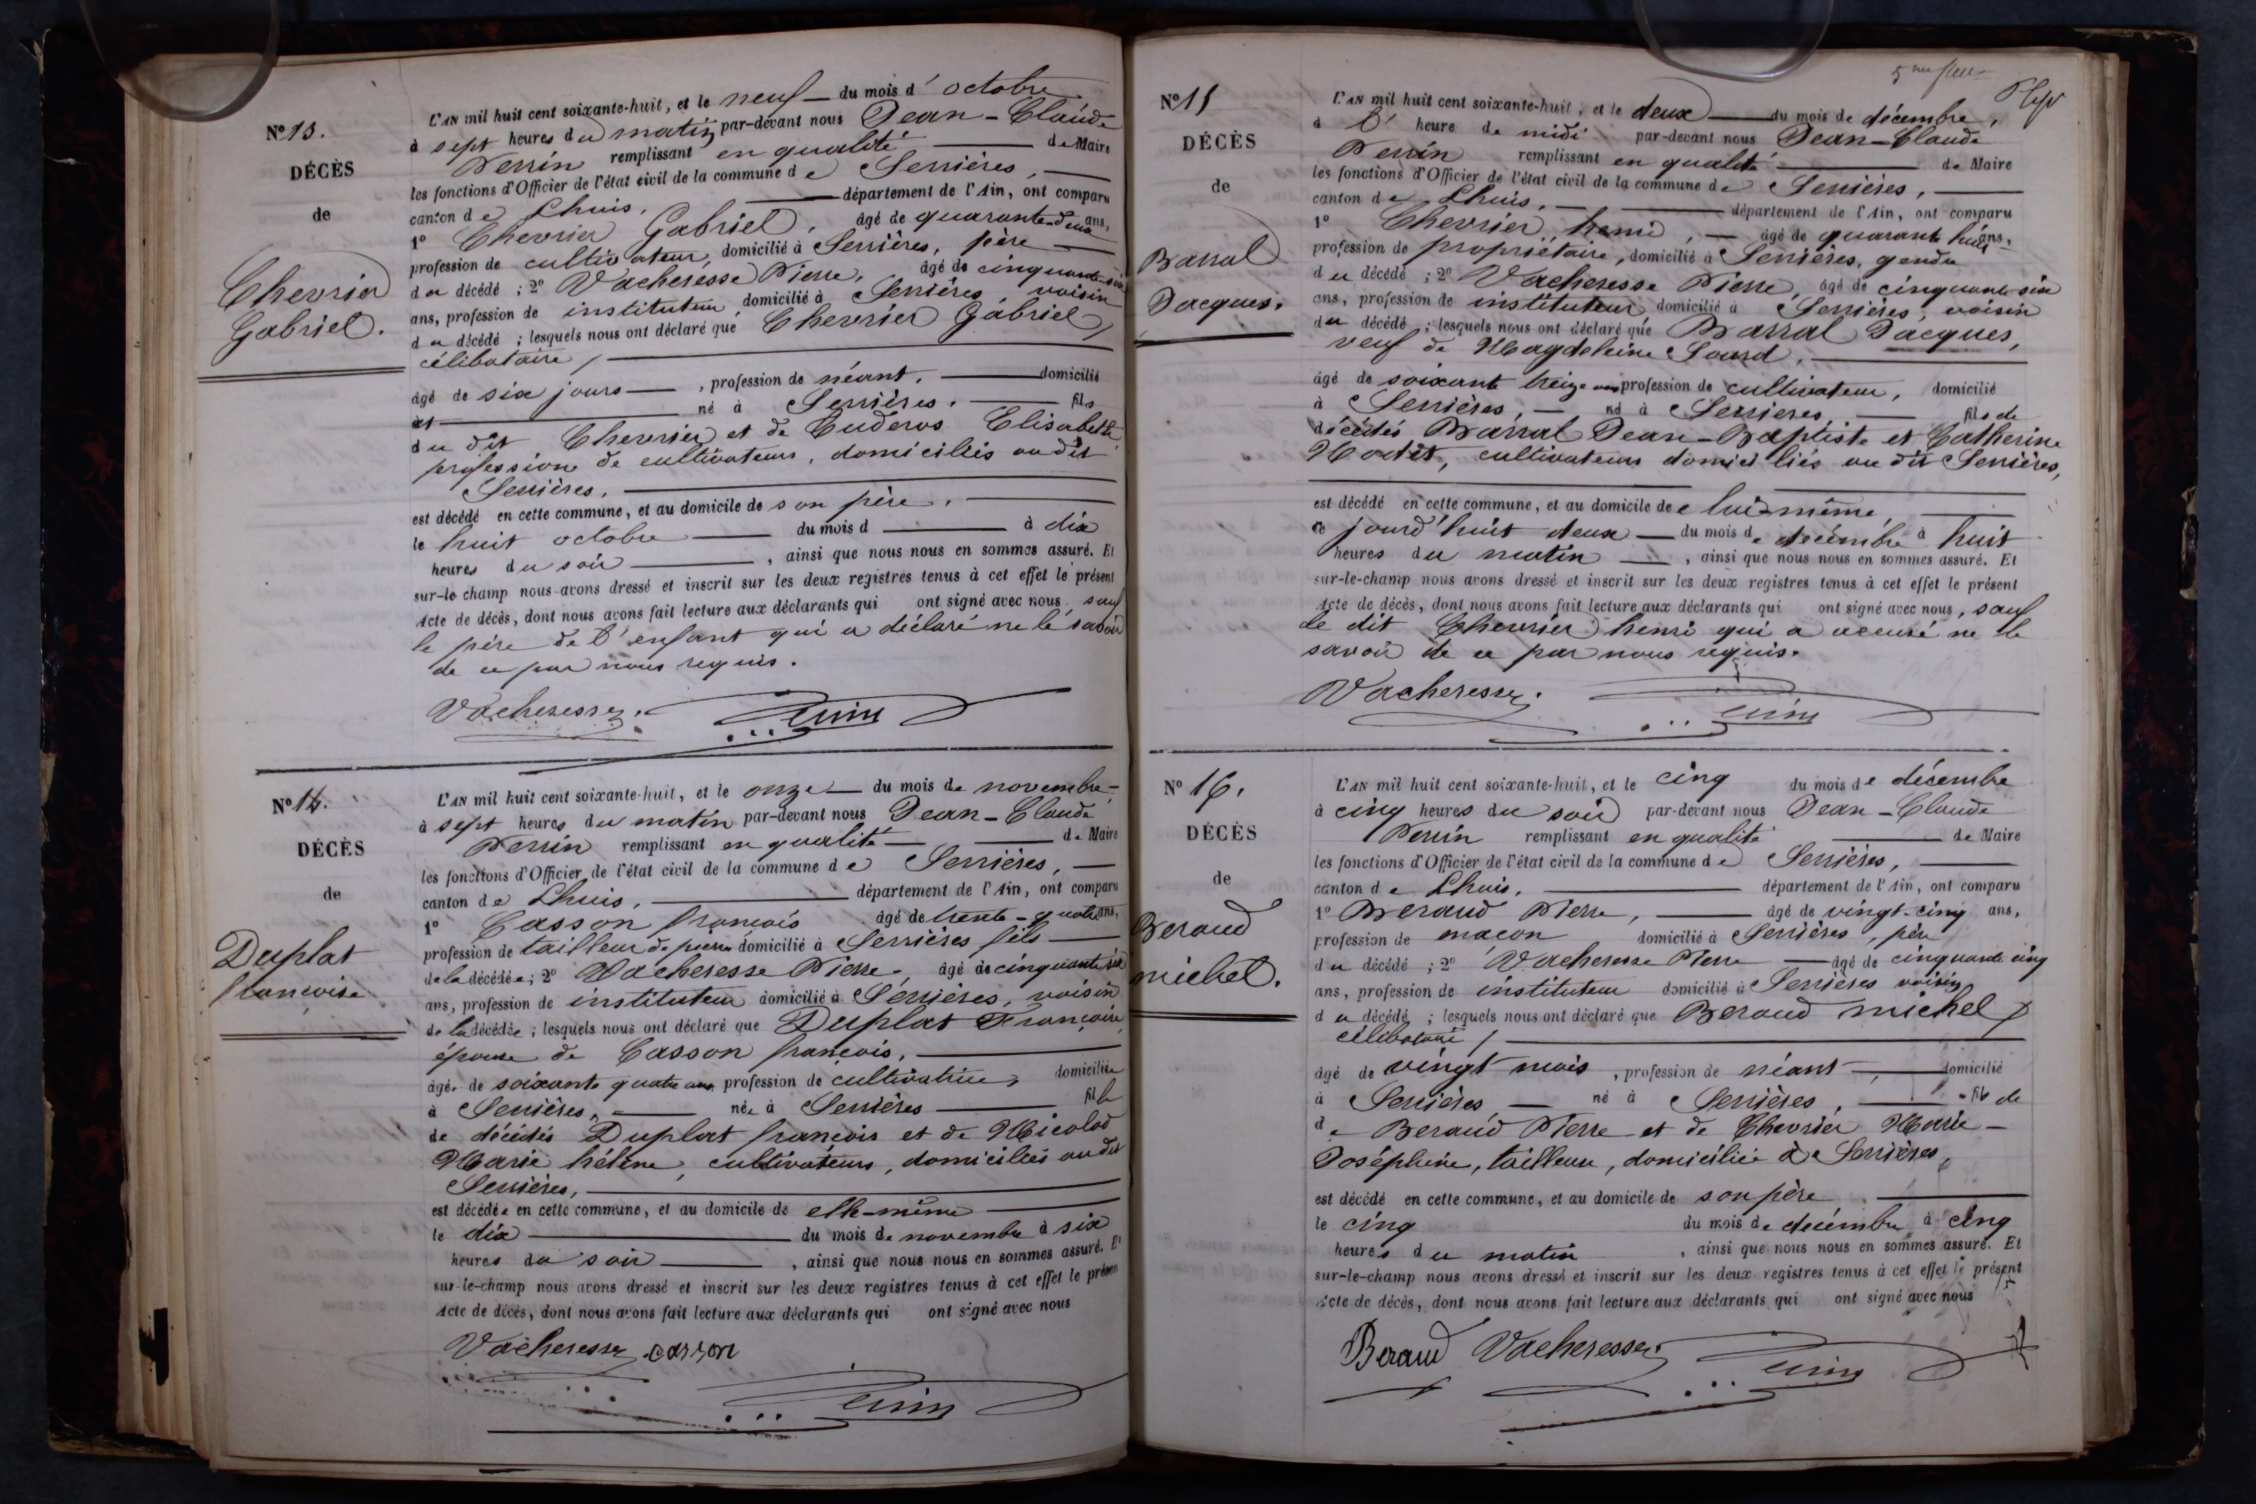 N° 13.
DÉCÈS
de
Chevrier
Gabriel.
L'AN mil huit cent soixante-huit, et le neuf du mois d'octobre
à sept heures du matin par-devant nous Jean-Claude
Perrin remplissant en qualité de Maire
les fonctions d'Officier de l'état civil de la commune de Serrières,
canton de Lhuis, département de l'Ain, ont comparu
1° Chevrier Gabriel, âgé de quarante-deux ans,
profession de cultivateur, domicilié à Serrières, père
du décédé ; 2° Vacheresse Pierre, âgé de cinquante-six
ans, profession de instituteur domicilié à Serrières, voisin
du décédé ; lesquels nous ont déclaré que Chevrier Gabriel
célibataire
âgé de six jours, profession de néant, domicilié
à né à Serrières. fils
du dit Chevrier et de Elisabeth
profession de cultivateurs, domiciliés au dit
Serrières.
est décédé en cette commune, et au domicile de son père.
le huit octobre du mois d à dix
heures du soir, ainsi que nous nous en sommes assuré. Et
sur-le champ nous avons dressé et inscrit sur les deux registres tenus à cet effet le présent
Acte de décès, dont nous avons fait lecture aux déclarants qui ont signé avec nous, sauf
le père de l'enfant qui a déclaré ne le savoir
de ce par nous requis.
Vacheresse. Perrin
N° 14.
DÉCÈS
de
Duplat
francoise
L'AN mil huit cent soixante-huit, et le onze du mois de novembre
à sept heures du matin par-devant nous Jean-Claude
Perrin remplissant en qualité de Maire
les fonctions d'Officier de l'état civil de la commune de Serrières,
canton de Lhuis, département de l'Ain, ont comparu
1° Casson françois âgé de trente-quatre ans,
profession de tailleur de pierre domicilié à Serrières fils
de la décédée ; 2° Vacheresse Pierre, âgé de cinquante six
ans, profession de instituteur domicilié à Serrières, voisin
de la décédée ; lesquels nous ont déclaré que Duplat Françoise
épouse de Casson françois,
âgée de soixante quatre ans profession de cultivatrice, domiciliée
à Serrières, née à Serrières fille
de décédés Duplat françois et de Micolod
Marie hélène, cultivateurs, domiciliés au dit
Serrières,
est décédée en cette commune, et au domicile de elle-même
le dix du mois de novembre à six
heures du soir, ainsi que nous nous en sommes assuré. Et
sur-le-champ nous avons dressé et inscrit sur les deux registres tenus à cet effet le présent
Acte de décès, dont nous avons fait lecture aux déclarants qui ont signé avec nous
Vacheresse casson
Perrin
N° 15
DÉCÈS
de
Barral
Jacques.
L'AN mil huit cent soixante-huit, et le deux du mois de décembre,
à l'heure de midi par-devant nous Jean-Claude
Perrin remplissant en qualité de Maire
les fonctions d'Officier de l'état civil de la commune de Serrières,
canton de Lhuis, département de l'Ain, ont comparu
1° Chevrier henri, âgé de quarante huit ans,
profession de propriétaire, domicilié à Serrières, gendre
du décédé ; 2° Vacheresse Pierre, âgé de cinquante-six
ans, profession de instituteur domicilié à Serrières, voisin
du décédé ; lesquels nous ont déclaré que Barral Jacques,
veuf de Magdeleine Sourd,
âgé de soixante treize ans profession de cultivateur, domicilié
à Serrières, né à Serrieres fils de
décédés Barral Jean-Baptiste et Catherine
cultivateurs domiciliés au dit Serrières,
est décédé en cette commune, et au domicile de lui-même
ce jourd'huit deux du mois de décembre à huit
heures du matin, ainsi que nous nous en sommes assuré. Et
sur-le-champ nous avons dressé et inscrit sur les deux registres tenus à cet effet le présent
Acte de décès, dont nous avons fait lecture aux déclarants qui ont signé avec nous, sauf
le dit Chevrier henri qui a accusé ne le
savoir de ce par nous requis.
Vacheresse. Perrin
N° 16.
DÉCÈS
de
Beraud
michel.
L'AN mil huit cent soixante-huit, et le cinq du mois de décembre
à cinq heures du soir par-devant nous Jean-Claude
Perrin remplissant en qualité de Maire
les fonctions d'Officier de l'état civil de la commune de Serrières,
canton de Lhuis, département de l'Ain, ont comparu
1° Beraud Pierre, âgé de vingt-cinq ans,
profession de macon domicilié à Serrières, père
du décédé ; 2° Vacheresse Pierre âgé de cinquante cinq
ans, profession de instituteur domicilié à Serrières voisin
du décédé ; lesquels nous ont déclaré que Beraud michel
célibataire
âgé de vingt mois, profession de néant, domicilié
à Serrières né à Serrières, fils de
de Beraud Pierre et de Chevrier Marie-
Joséphine, tailleuse, domiciliée à Serrières,
est décédé en cette commune, et au domicile de son père
le cinq du mois de décembre à cinq
heures du matin, ainsi que nous nous en sommes assuré. Et
sur-le-champ nous avons dressé et inscrit sur les deux registres tenus à cet effet le présent
Acte de décès, dont nous avons fait lecture aux déclarants qui ont signé avec nous
Beraud Vacheresse. Perrin